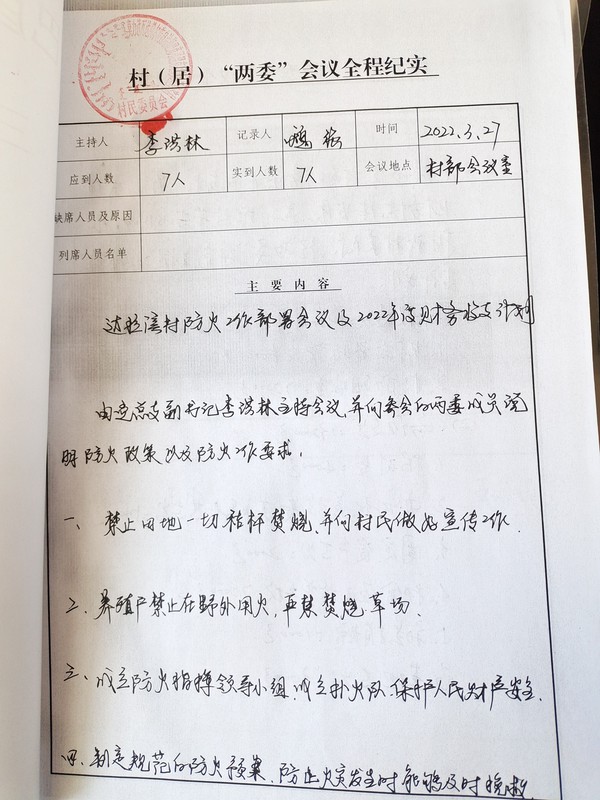 村民委员会
村（居）“两委”会议全程纪实
主持人 李洪林 记录人 时间 2022.3.27
应到人数 7人 实到人数 7人 会议地点 村部会议室
缺席人员及原因
列席人员名单
主要内容
村防火工作部署会议及2022年度财务收支计划
由党总支副书记李洪林主持会议,并向参会的两委成员说
明防火政策以及防火工作要求。
一、禁止田地一切秸秆焚烧,并向村民做好宣传工作.
二、养殖户禁止在野外用火,严禁焚烧草场.
三、成立防火指挥领导小组,成立扑火队,保护人民财产安全.
四、制定规范的防火预案,防止火灾发生时能够及时挽救.